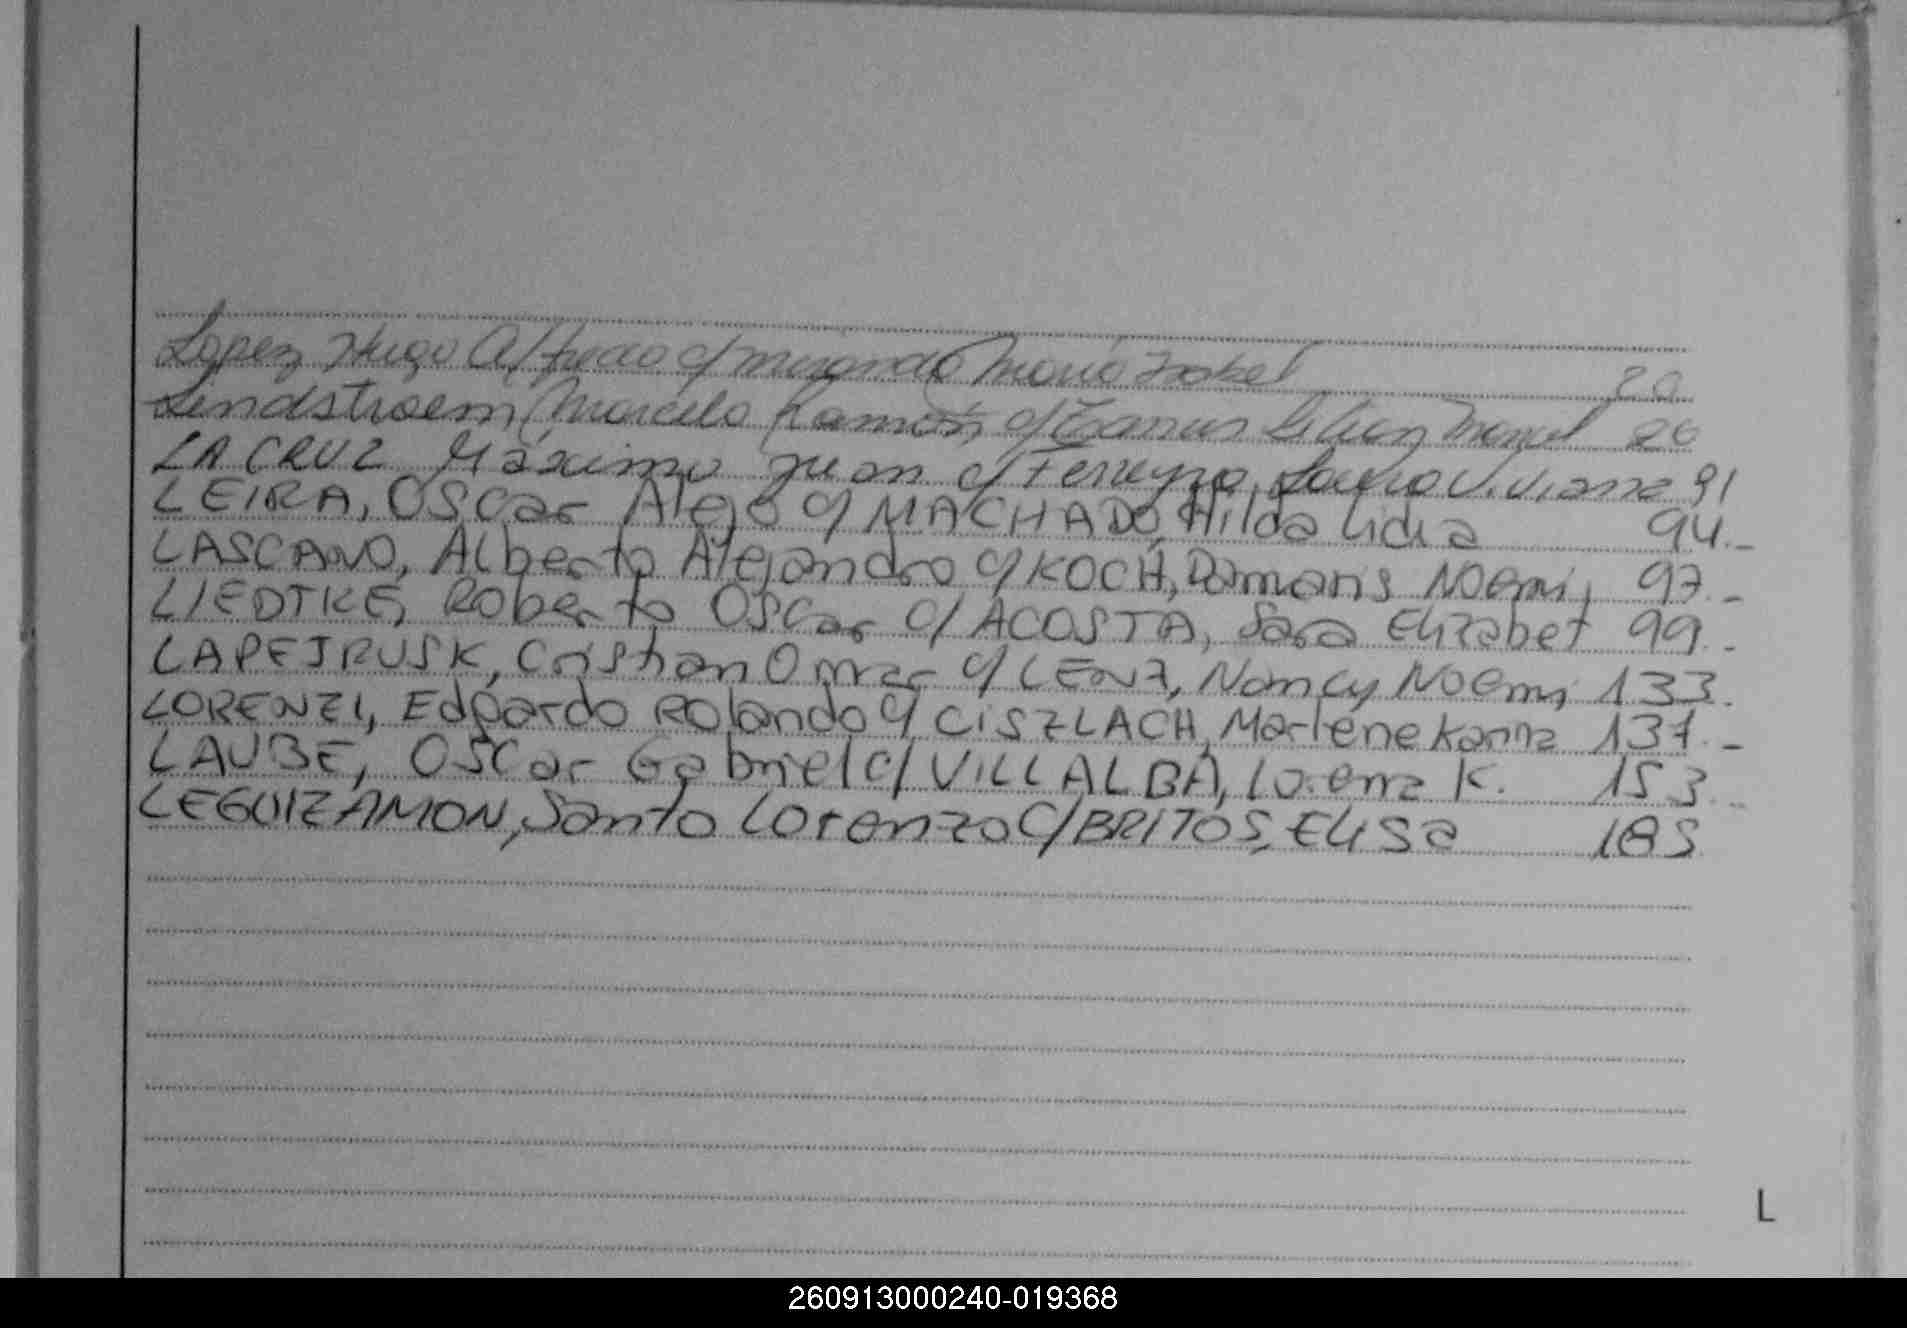 Lopez Hugo Alfredo c/ Miranda Maria Isabel 20
Lindstroem, Marcelo Ramón, c/ Lilian 26
LA CRUZ Máximo Juan c/ Ferreyra, Laura Viviana 91
LEIRA, OSCar Alejo c/ MACHADO, Hilda Lidia 94.-
LASCANO, Alberto Alejandro c/ KOCH, Damaris Noemi, 97.-
LIEDTKE, Roberto OSCar c/ ACOSTA, Sara Elizabet 99.-
LAPEJRUSK, Cristian Omar c/ LENZ, Nancy Noemi 133.
LORENZI, Eduardo Rolando c/ CISZLACH, Marlene Karina 137.-
LAUBE, OSCar Gabriel c/ VILLALBA, Lorena K. 153.-
LEGUIZAMON, Santo Lorenzo C/ BRITOS, Elisa 185
L
260913000240-019368